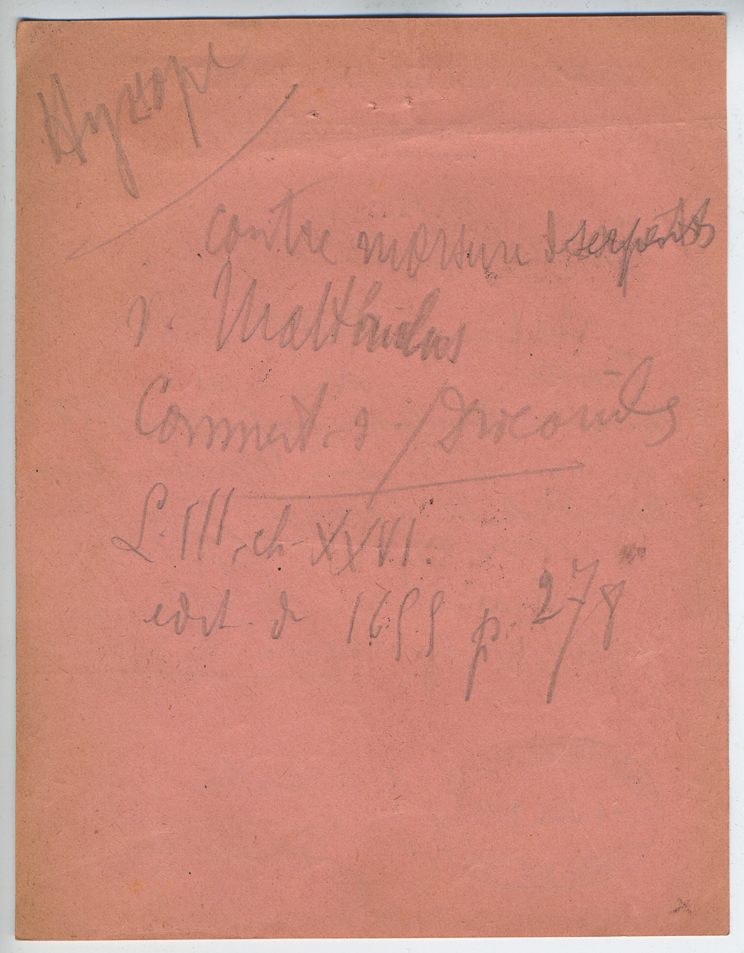 Hyssope
contre morsure de serpents
v. Matthiolus
Comment. s. Dioscoride
L. III, ch XXVI.
edit de 1655 p. 278